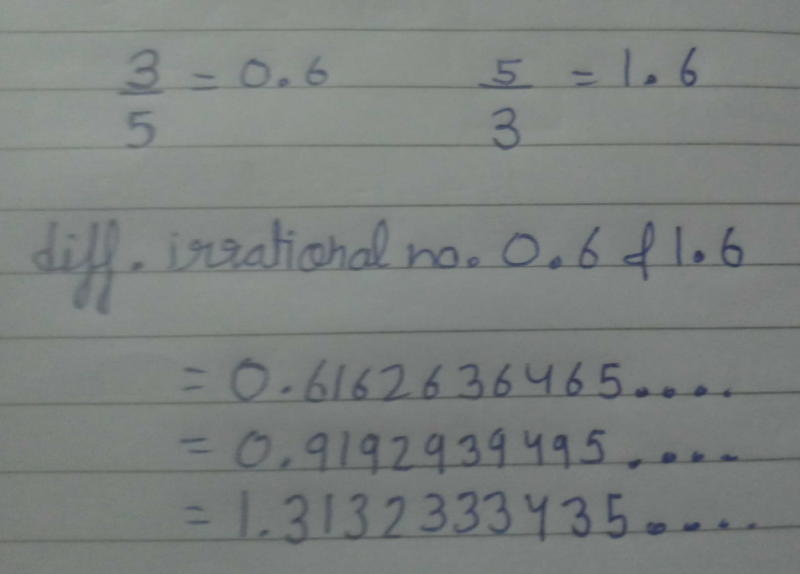 3/5 = 0.6    5/3 = 1.6
diff. irrational no. 0.6 & 1.6
= 0.6162636465....
= 0.9192939495....
= 1.3132333435.....